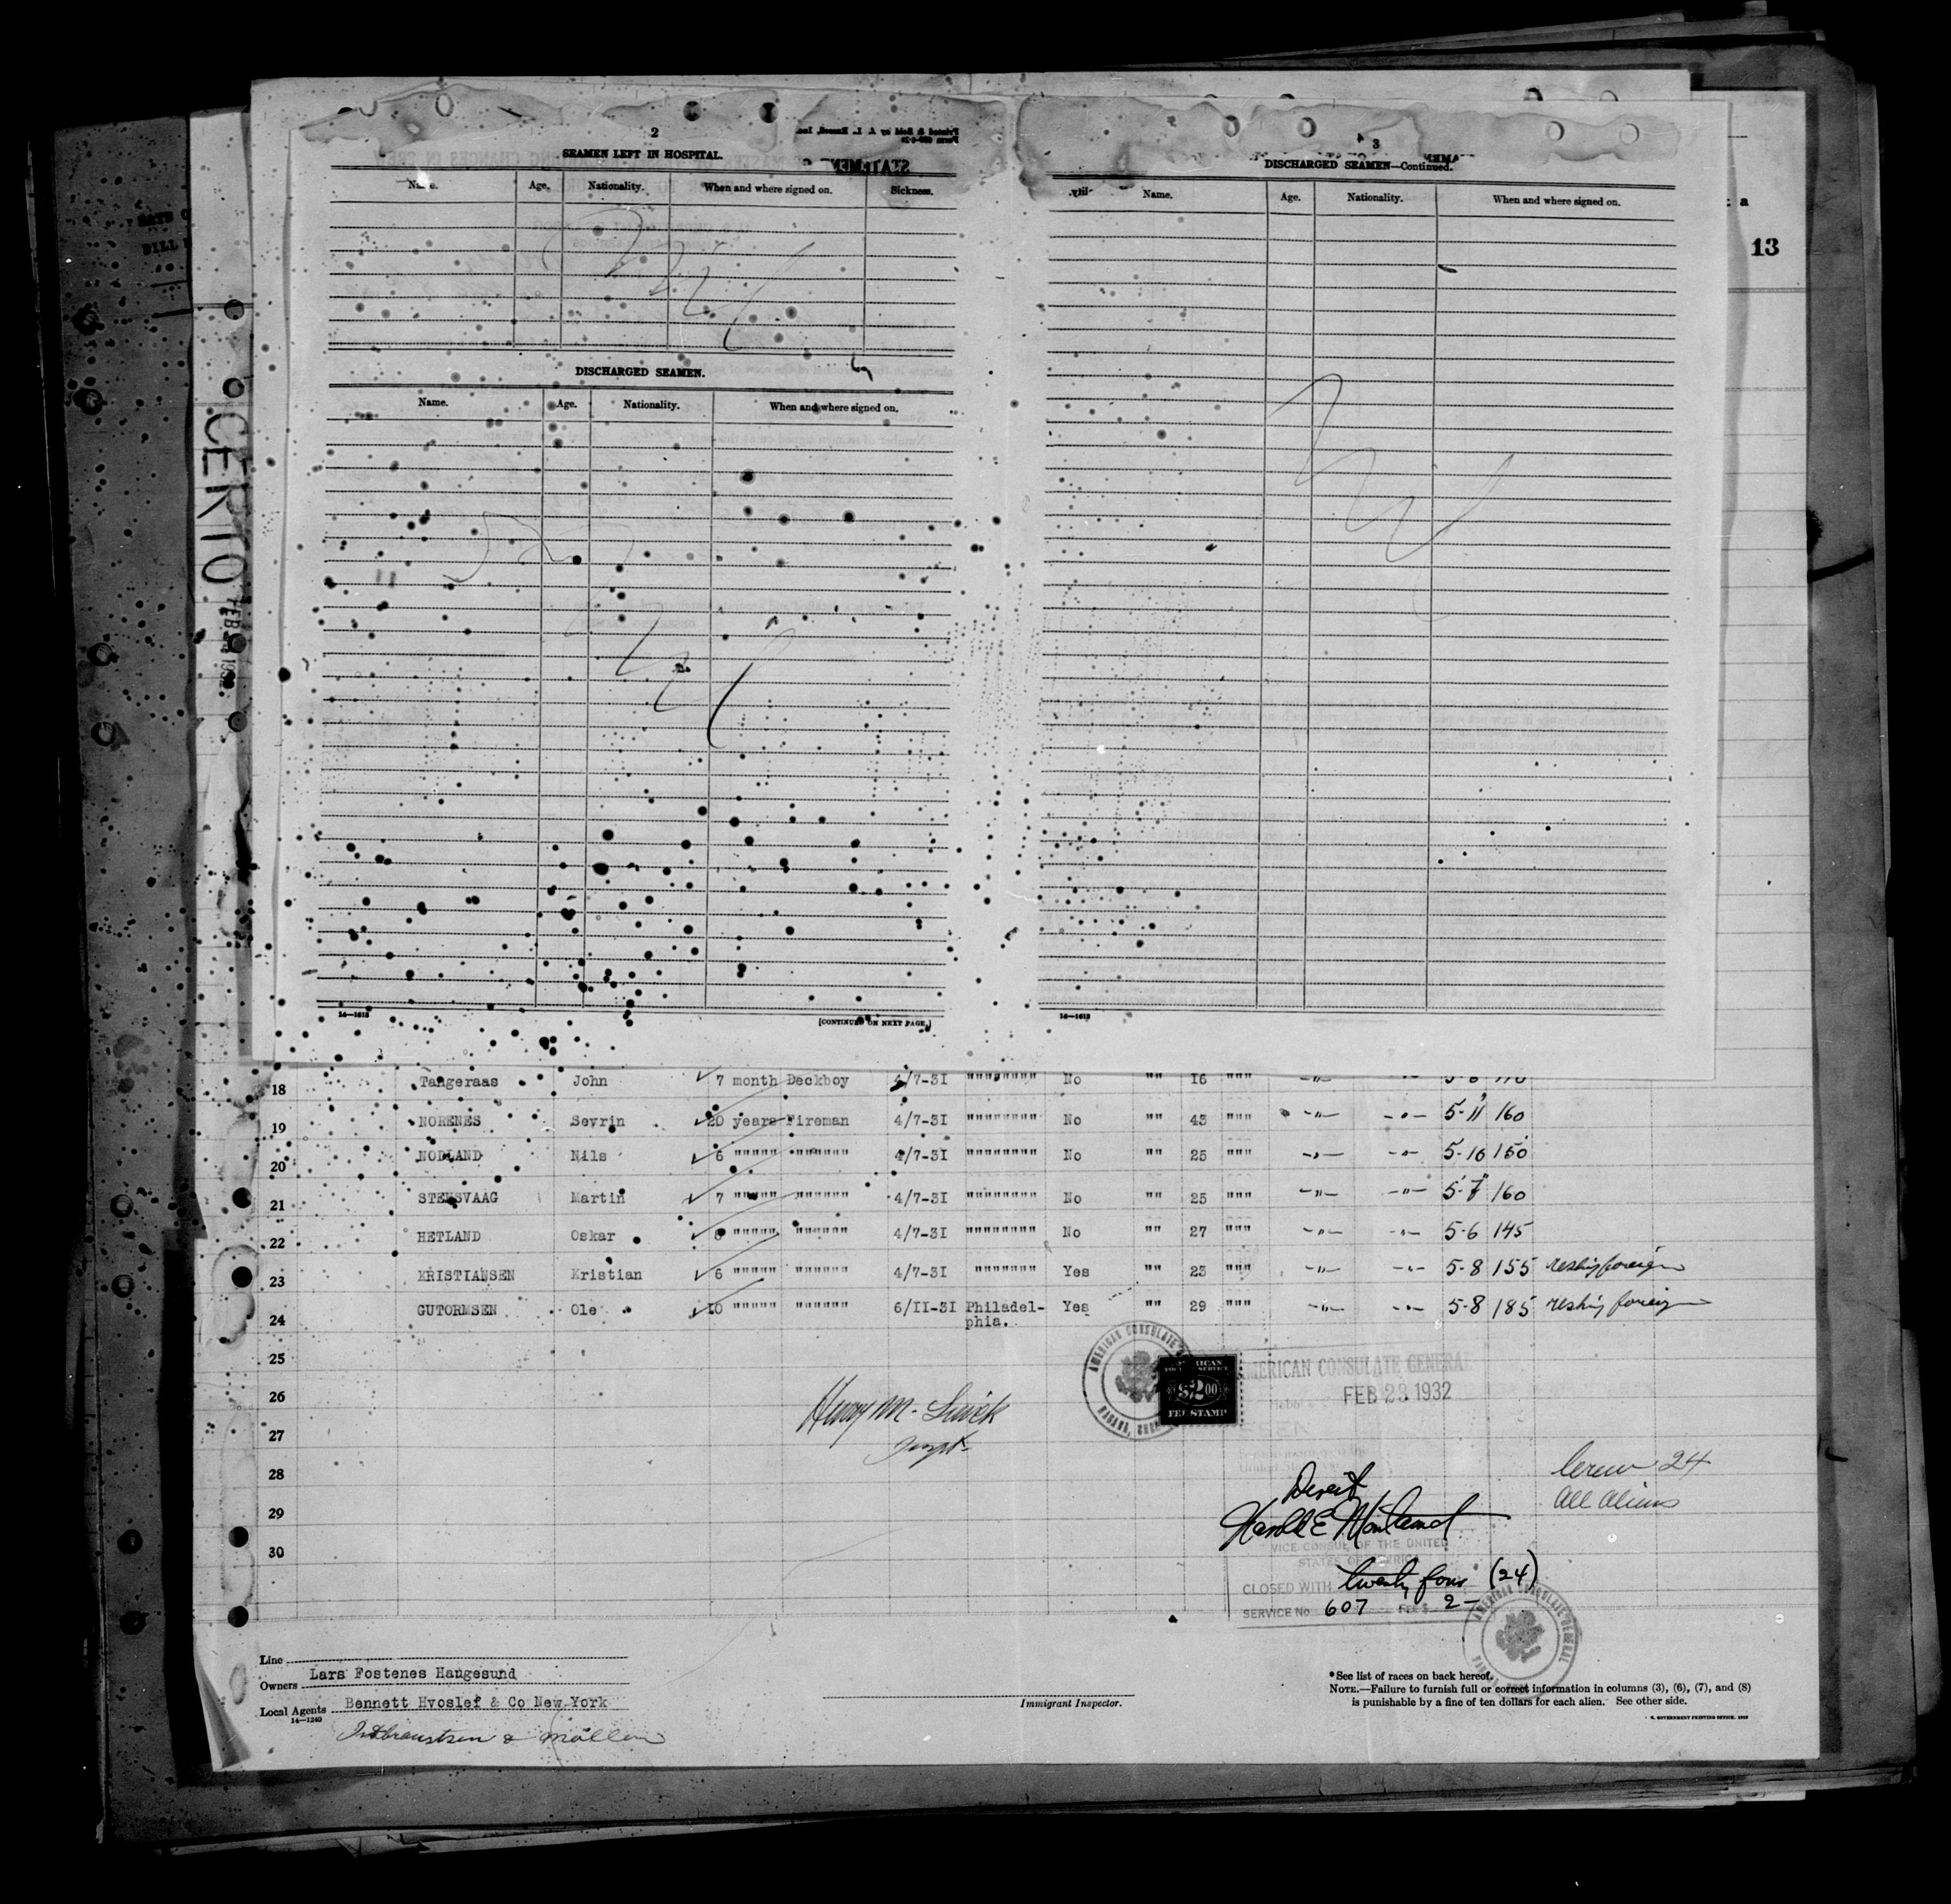 2
SEAMEN LEFT IN HOSPITAL.
Name. Age. Nationality. When and where signed on. Sickness.
Nil
DISCHARGED SEAMEN.
Name. Age. Nationality. When and where signed on.
Nil
14—1613
[CONTINUED ON NEXT PAGE.]
3
DISCHARGED SEAMEN—Continued.
Name. Age. Nationality. When and where signed on.
Nil
14—1613
13
CERTO
FEB 1932
18 Tangeraas John 7 month Deckboy 4/7-31 """""""" No "" 16 """ -"- -"-
19 NORENES Sevrin 20 years Fireman 4/7-31 """""""" No "" 43 """ -"- -"- 5-11 160
20 NODLAND Nils 6 """"" """""" 4/7-31 """""""" No "" 25 """ -"- -"- 5-10 150
21 STENSVAAG Martin 7 """"" """""" 4/7-31 """""""" No "" 25 """ -"- -"- 5-7 160
22 HETLAND Oskar 8 """"" """""" 4/7-31 """""""" No "" 27 """ -"- -"- 5-6 145
23 KRISTIANSEN Kristian 6 """"" """""" 4/7-31 """"""" Yes "" 23 """ -"- -"- 5-8 155 reship foreign
24 GUTORMSEN Ole 10 """"" """""" 6/II-31 Philadel- Yes "" 29 """ -"- -"- 5-8 185 reship foreign
phia.
25
26
27
28
29
30
AMERICAN CONSULATE GENERAL
FEB 23 1932
AMERICAN CONSULATE
HABANA, CUBA
AMERICAN
FOREIGN SERVICE
$2.00
FEE STAMP
Crew 24
All Aliens
VICE CONSUL OF THE UNITED
STATES OF AMERICA
CLOSED WITH twenty four (24)
SERVICE No 607 FEE $ 2-
AMERICAN CONSULATE GENERAL
Line
Owners Lars Fostenes Haugesund
Local Agents Bennett Hvoslef & Co New York
14—1240
Immigrant Inspector.
*See list of races on back hereof.
NOTE.—Failure to furnish full or correct information in columns (3), (6), (7), and (8)
is punishable by a fine of ten dollars for each alien. See other side.
GOVERNMENT PRINTING OFFICE